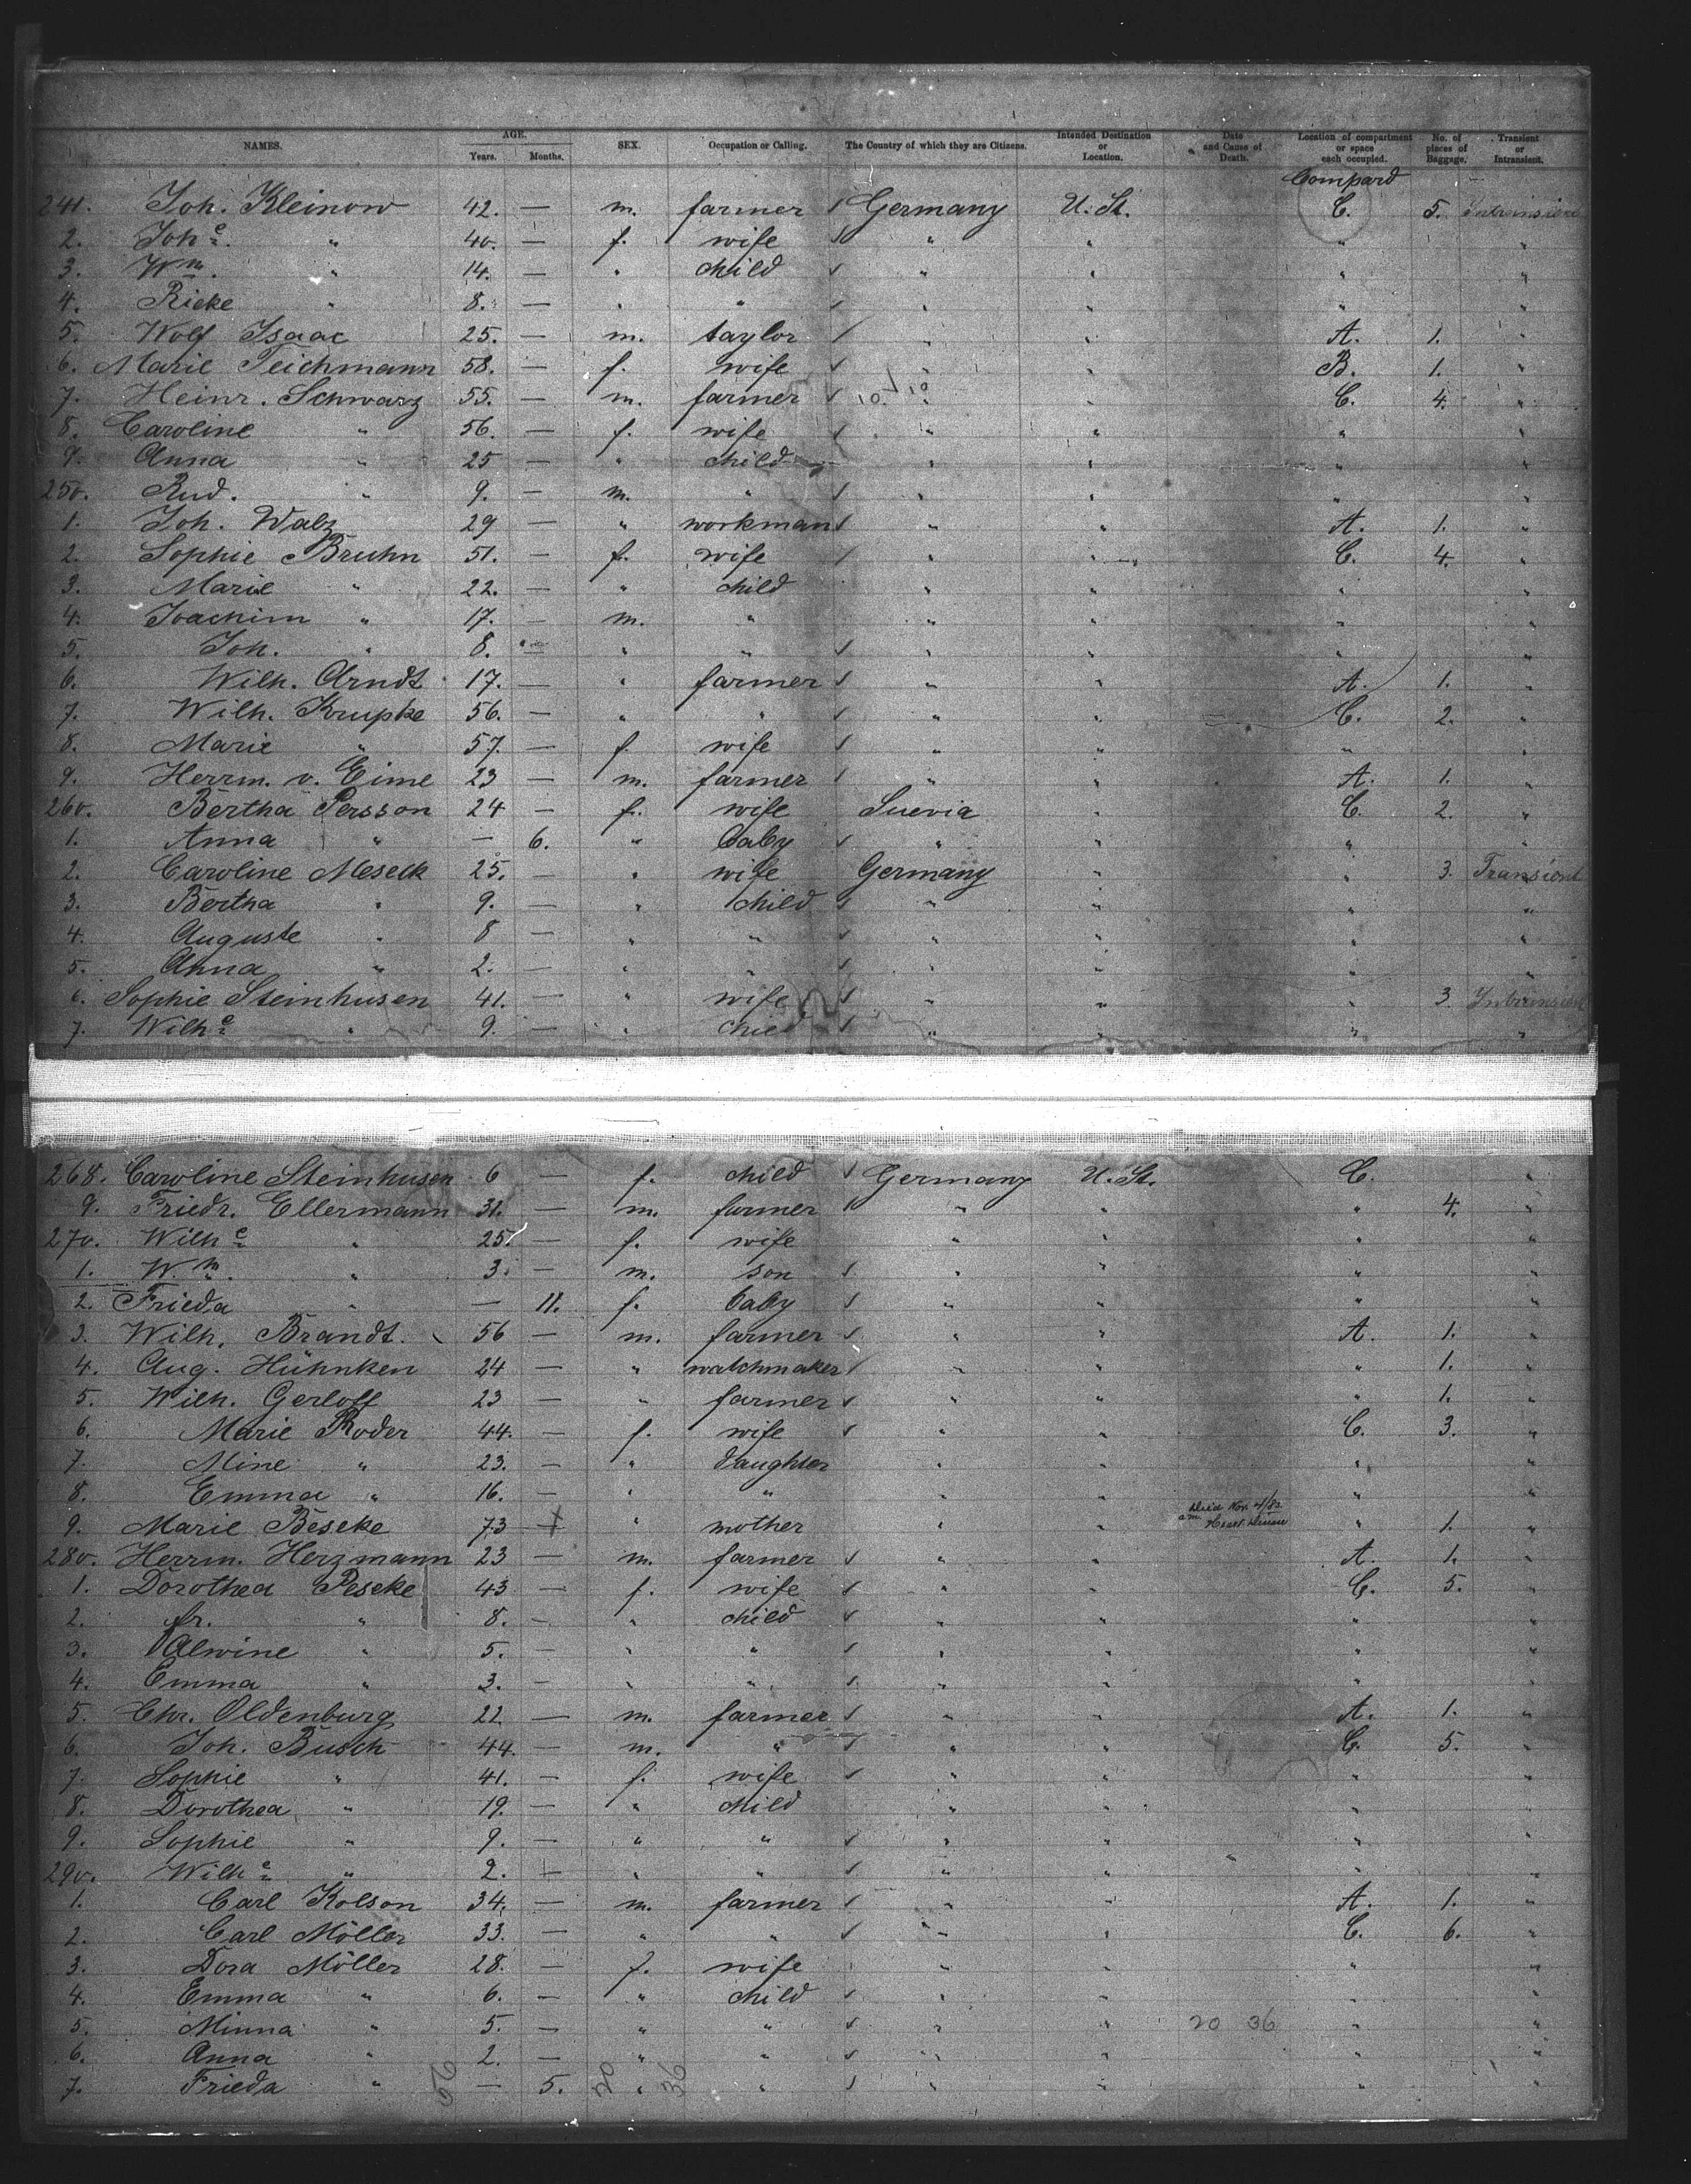 NAMES. AGE. Years. Months. SEX. Occupation or Calling. The Country of which they are Citizens. Intended Destination or Location. Date and Cause of Death. Location of compartment or space each occupied. No. of pieces of Baggage. Transient or Intransient.
Compard
241. Joh. Kleinow 42. — m. farmer Germany U. St. C. 5. Intransient
2. Johe. " 40. — f. wife " " " "
3. Wm. " 14. — " child " " " "
4. Rieke " 8. — " " " " " "
5. Wolf Isaac 25. — m. taylor " " A. 1. "
6. Marie Teichmann 58. — f. wife " " B. 1. "
7. Heinr. Schwarz 55. — m. farmer " " C. 4. "
8. Caroline " 56. — f. wife " " " "
9. Anna " 25 — " child " " " "
250. Rud. " 9. — m. " " " " "
1. Joh. Walz 29 — " workman " " A. 1. "
2. Sophie Bruhn 51. — f. wife " " C. 4. "
3. Marie " 22. — " child " " " "
4. Joachim " 17. — m. " " " " "
5. Joh. " 8. — " " " " " "
6. Wilh. Arndt 17. — " farmer " " A. 1. "
7. Wilh. Krupke 56. — " " " " C. 2. "
8. Marie " 57. — f. wife " " " "
9. Herrm. v. Eime 23 — m. farmer " " A. 1. "
260. Bertha Persson 24 — f. wife Suevia " C. 2. "
1. Anna " — 6. " baby " " " "
2. Caroline Meseck 25. — " wife Germany " " 3. Transient
3. Bertha " 9. — " child " " " "
4. Auguste " 8 — " " " " " "
5. Anna " 2. — " " " " " "
6. Sophie Steinhusen 41. — " wife " " " 3. Intransient
7. Wilhe " 9. — " child " " " "
268. Caroline Steinhusen 6 — f. child Germany U. St. C. "
9. Friedr. Ellermann 31. — m. farmer " " " 4. "
270. Wilhe " 25. — f. wife " " " "
1. Wm. " 3. — m. son " " " "
2. Frieda " — 11. f. baby " " " "
3. Wilh. Brandt 56 — m. farmer " " A. 1. "
4. Aug. Hühnken 24 — " watchmaker " " " 1. "
5. Wilh. Gerloff 23 — " farmer " " " 1. "
6. Marie Roder 44. — f. wife " " C. 3. "
7. Mine " 23. — " daughter " " " "
8. Emma " 16. — " " " " " "
9. Marie Beseke 73 — " mother " " Died Nov. 4/82 a.m. Heart Disease " 1. "
280. Herrm. Herzmann 23 — m. farmer " " A. 1. "
1. Dorothea Peseke 43 — f. wife " " C. 5. "
2. Fr. " 8. — " child " " " "
3. Alwine " 5. — " " " " " "
4. Emma " 3. — " " " " " "
5. Chr. Oldenburg 22. — m. farmer " " A. 1. "
6. Joh. Busch 44. — m. " " " C. 5. "
7. Sophie " 41. — f. wife " " " "
8. Dorothea " 19. — " child " " " "
9. Sophie " 9. — " " " " " "
290. Wilhe " 2. — " " " " " "
1. Carl Kolson 34. — m. farmer " " A. 1. "
2. Carl Möller 33. — " " " " C. 6. "
3. Dora Möller 28. — f. wife " " " "
4. Emma " 6. — " child " " " "
5. Minna " 5. — " " " " 20 36 " "
6. Anna " 2. — " " " " " "
7. Frieda " — 5. " " " " " "
56 20 36